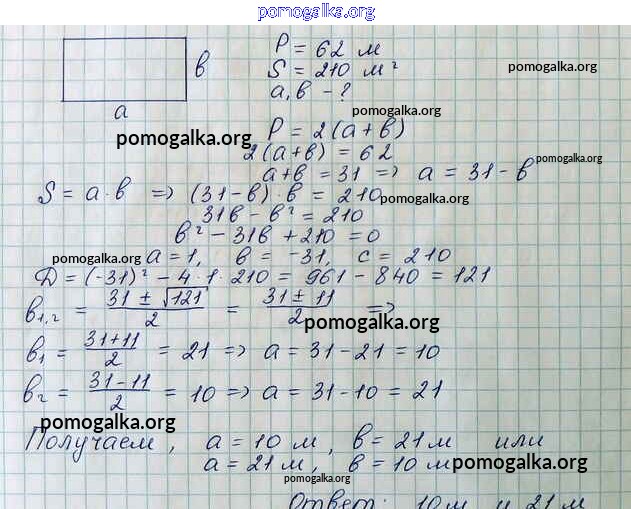 pomogalka.org
P = 62 м
в
S = 210 м²
pomogalka.org
pomogalka.org
a, в - ?
a
pomogalka.org
pomogalka.org
P = 2(a+в)
2(a+в) = 62
pomogalka.org
a+в = 31 => a = 31 - в
S = a · в => (31-в) · в = 210
pomogalka.org
31в - в² = 210
в² - 31в + 210 = 0
pomogalka.org
a = 1, в = -31, c = 210
D = (-31)² - 4 · 1 · 210 = 961 - 840 = 121
в1,2 = (31 ± √121)/2 = (31 ± 11)/2 =>
pomogalka.org
в1 = (31+11)/2 = 21 => a = 31 - 21 = 10
в2 = (31-11)/2 = 10 => a = 31 - 10 = 21
pomogalka.org
Получаем, a = 10 м, в = 21 м или
a = 21 м, в = 10 м
pomogalka.org
pomogalka.org
Ответ: 10 м и 21 м